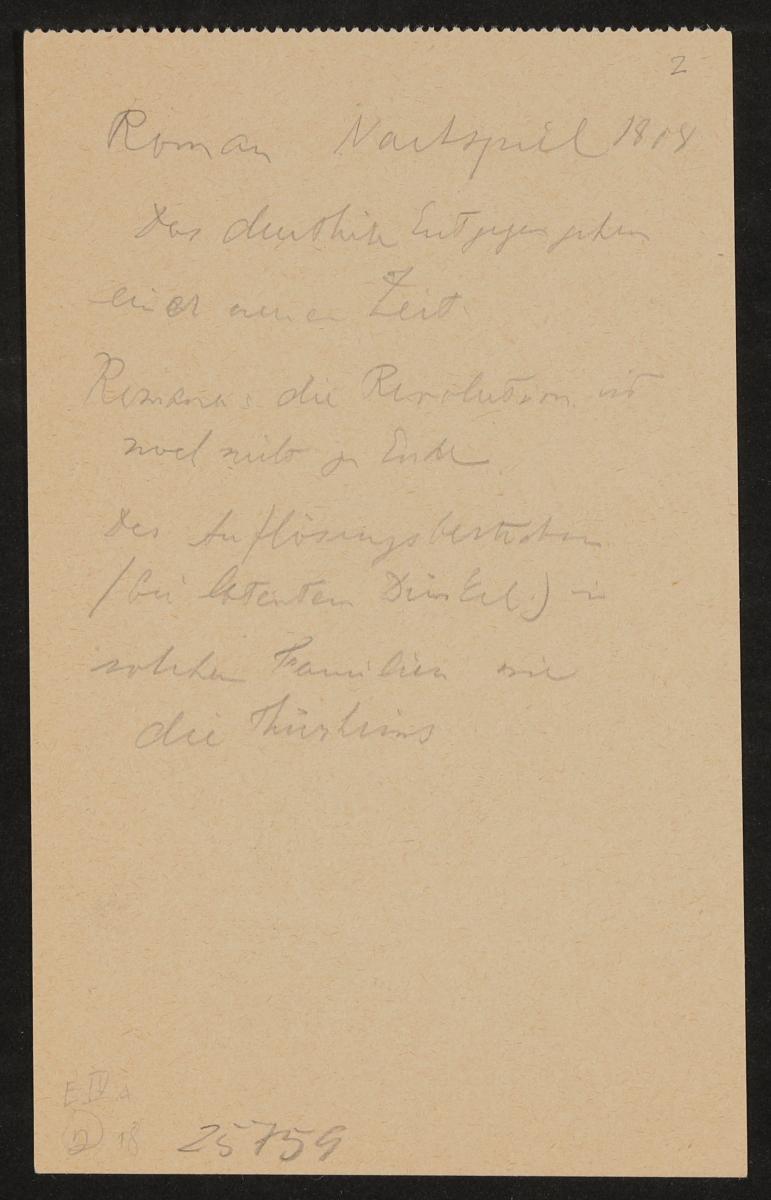 2
Roman Nachspiel 1808
Das deutliche Entgegengehen
einer neuen Zeit.
Romana: die Revolution ist
noch nicht zu Ende
Das Auflösungsbestreben
(bei latentem Dünkel) in
solchen Familien wie
die Thürheims
E IV a
2 18
25759